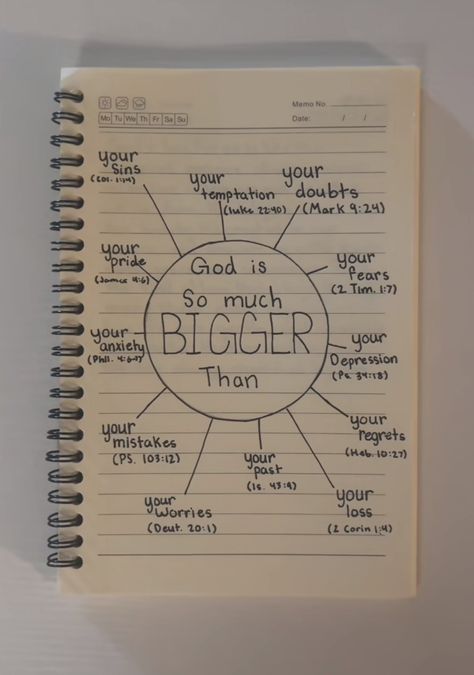 Memo No.
Mo Tu We Th Fr Sa Su
Date: / /
your
Sins
(Col. 1:14)
your
temptation
(luke 22:40)
your
doubts
(Mark 9:24)
your
pride
(James 4:6)
your
fears
(2 Tim. 1:7)
God is
So much
BIGGER
Than
your
anxiety
(Phil. 4:6-7)
your
Depression
(Ps. 34:18)
your
mistakes
(PS. 103:12)
your
regrets
(Heb. 10:27)
your
past
(Is. 43:9)
your
worries
(Deut. 20:1)
your
loss
(2 Corin 1:4)